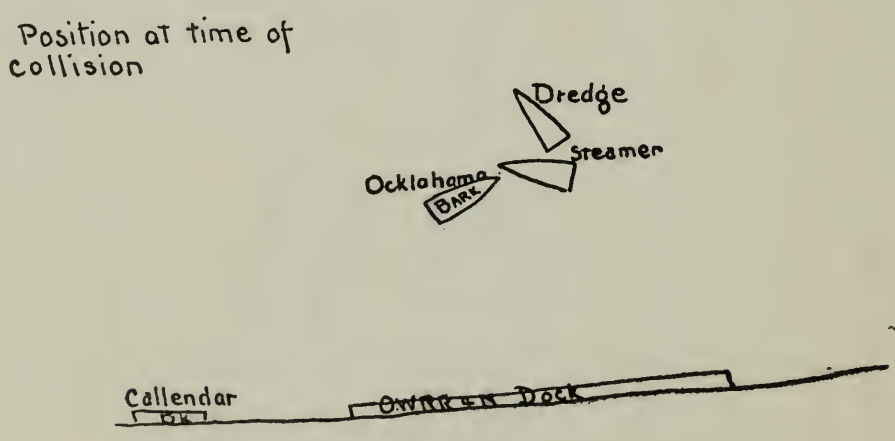 Position at time of
collision
Dredge
Steamer
Ocklahama
BARK
Callendar
BK
O.W.RR & N Dock